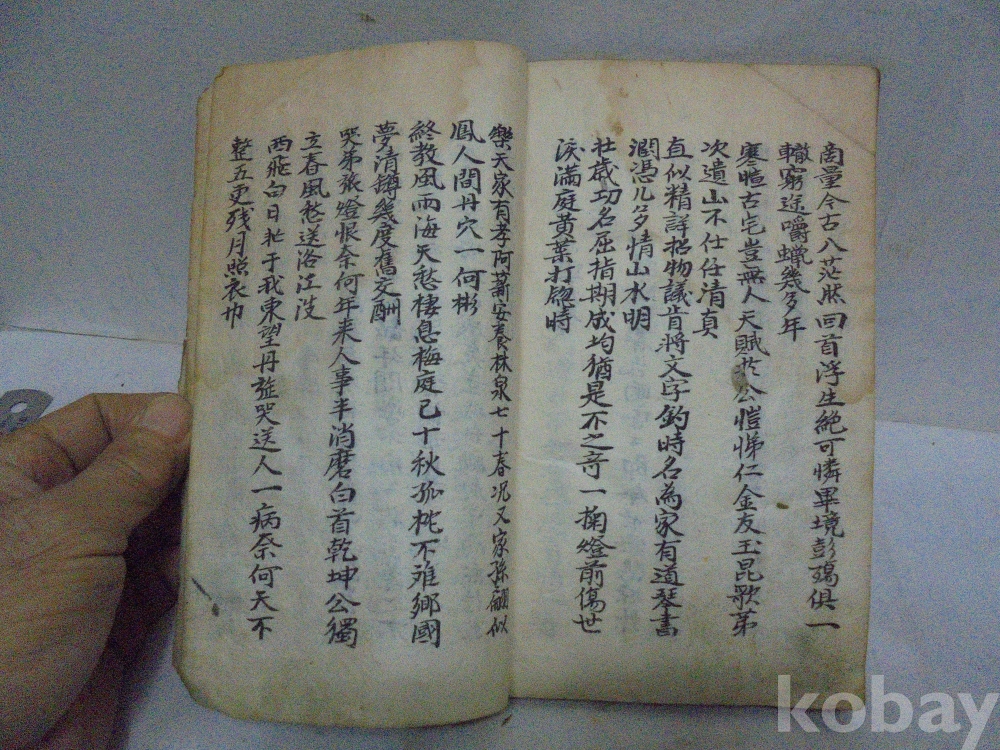 商量今古八茫然回首浮生絶可憐畢境彭殤俱一
轍窮途嚼蠟幾多年
寒暄古宅豈無人天賦於公愷悌仁金友玉昆歌第
次遺山不仕任清眞
直似精詳招物議肯將文字釣時名為家有道琴書
潤憑几多情山水明
壯歲功名屈指期成均猶是不之奇一掬燈前傷世
淚満庭黃葉打窓時
樂天家有孝阿 安養林泉七十春况又家孫 似
鳳人間丹穴一何彬
終教風雨海天愁棲息梅庭已十秋孤枕不難鄉國
夢清樽幾度舊交酬
哭弟張燈恨奈何年来人事半消磨白首乾坤公獨
立春風愁送洛江波
西飛白日 于我東望丹旌哭送人一病奈何天不
整五更残月照衣巾
kobay